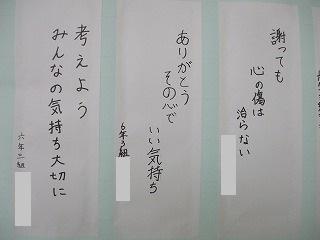 謝っても
心の傷は
治らない
ありがとう
その心で
いい気持ち
6年3組
考えよう
みんなの気持ち大切に
六年二組